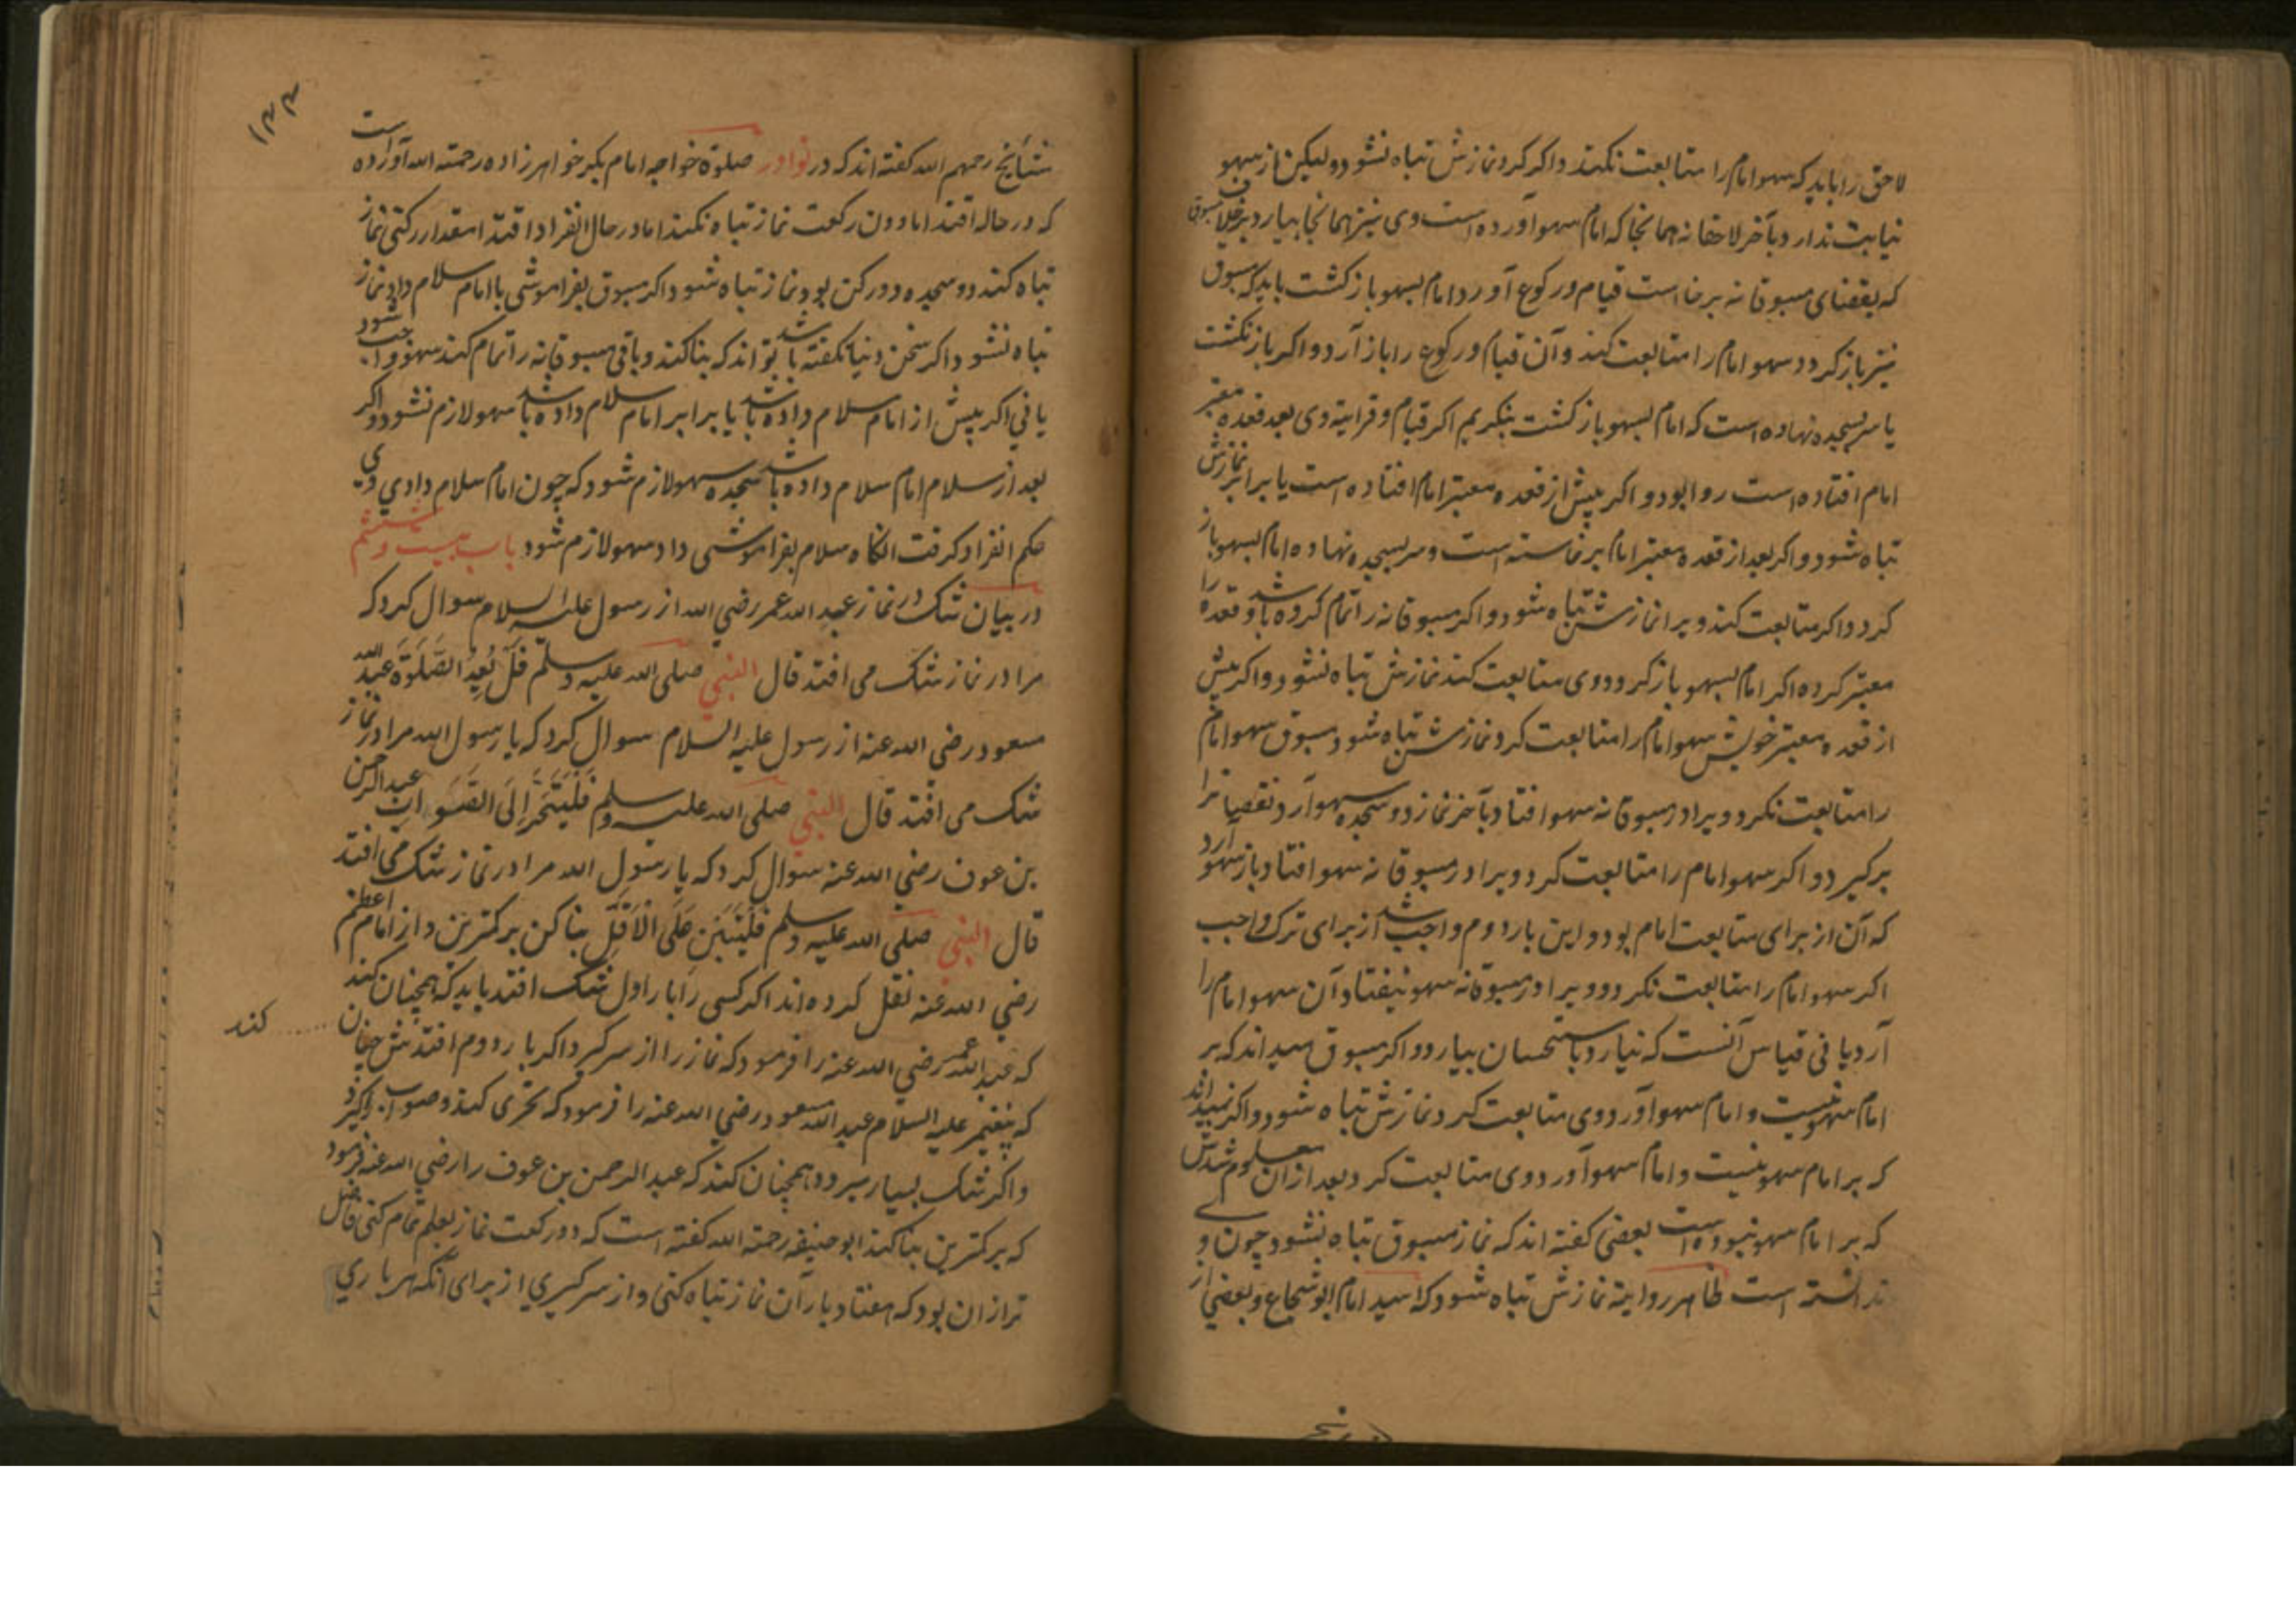 لاحق را باید که سهو امام را متابعت نکند و اگر کرد نمازش تباه نشود و لیکن از سهو
نیابت ندارد و بآخر لاحقانه همانجا که امام سهو آورده است وی نیز همانجا بیارد بر خلاف مسبوق
که بقضای مسبوقانه برخاست قیام و رکوع آورد و امام بسهو باز کشت باید که مسبوق
نیز باز کردد و سهو امام را متابعت کند و آن قیام و رکوع را باز آرد و اکر باز نکشت
یا سر بسجده نهاده است که امام بسهو باز کشت بنکریم اکر قیام و قرایة وی بعد قعده معتبر
امام افتاده است روا بود و اکر پیش از قعده معتبر امام افتاده است یا برابر نمازش
تباه شود و اکر بعد از قعده معتبر امام برخاسته است و سر بسجده نهاده امام بسهو باز
کردد اکر متابعت کند ویرا نمازش تباه شود و اکر مسبوقانه را تمام کرده باشد و قعده را
معتبر کرده اکر امام بسهو باز کردد وی متابعت کند نمازش تباه نشود و اکر پیش
از قعده معتبر خویش سهو امام را متابعت کرد نمازش تباه شود و مسبوق سهو امام
را متابعت نکرد ویرا در مسبوقانه سهو افتاد بآخر نماز دو سجده سهو آرد نقصان ترا
برکیرد و اکر سهو امام را متابعت کرد ویرا در مسبوقانه سهو افتاد باز سهو آرد
که آن از برای متابعت امام بود و این بار دوم واجب شد از برای ترک واجب
اکر سهو امام را متابعت نکرد و ویرا در مسبوقانه سهو نیفتاد آن سهو امام را
آرد یا فی قیاس آنست که نیارد و باستحسان بیارد و اکر مسبوق میداند که بر
امام سهو نیست و امام سهو آورد وی متابعت کرد نمازش تباه شود و اکر نمیداند
که بر امام سهو نیست و امام سهو آورد وی متابعت کرد بعد از آن معلوم شدش
که بر امام سهو نبوده است بعضی کفته اند که نماز مسبوق تباه نشود چون وی
ندانسته است ظاهر روایة نمازش تباه شود که سید امام ابو شجاع و بعضی از
۱۲۲
مشایخ رحمهم الله کفته اند که در نوادر صلوة خواجه امام بکر خواهرزاده رحمته الله آورده است
که در حاله اقتدا مادون رکعت نماز تباه نکند اما در حال انفراد اقتدا مقدار رکنی نماز
تباه کند دو سجده دو رکن بود نماز تباه شود و اکر مسبوق بفراموشی با امام سلام داد نماز
تباه نشود و اکر سخن دنیا نکفته باشد تواند که بنا کند و باقی مسبوقانه را تمام کند سهو واجب شود
یا فی اکر پیش از امام سلام داده باشد یا برابر امام سلام داده باشد سهو لازم نشود و اکر
بعد از سلام امام سلام داده باشد سجده سهو لازم شود که چون امام سلام داد وی
حکم انفراد کرفت انکاه سلام بفراموشی داد سهو لازم شود باب بیست و ششم
در بیان شک در نماز عبد الله عمر رضی الله از رسول علیه السلام سوال کرد که
مرا در نماز شک می افتد قال النبی صلی الله علیه وسلم قل یُعِدِ الصَّلوةَ عبد الله
مسعود رضی الله عنه از رسول علیه السلام سوال کرد که یا رسول الله مرا در نماز
شک می افتد قال النبی صلی الله علیه وسلم فَلْیَتَحَرَّ اِلَی الصَّوَاب عبد الرحمن
بن عوف رضی الله عنه سوال کرد که یا رسول الله مرا در نماز شک می افتد
قال النبی صلی الله علیه وسلم فَلْیَبْنِ عَلَی الْاَقَلِّ بنا کن بر کمترین و از امام اعظم
رضی الله عنه نقل کرده اند اکر کسی را بار اول شک افتد باید که همچنان کند
که عبد الله عمر رضی الله عنه را فرمود که نماز را از سر کیرد و اکر بار دوم افتدش چنان کند
که پیغمبر علیه السلام عبد الله مسعود رضی الله عنه را فرمود که تحری کند و صواب
و اکر شک بسیار میرود همچنان کند که عبد الرحمن بن عوف را رضی الله عنه فرمود
که بر کمترین بنا کند ابو حنیفه رحمته الله کفته است که دو رکعت نماز بعلم تمام کنی فاضل
تر از آن بود که هفتاد بار آن نماز تباه کنی و از سر کیری از برای آنکه هر باری